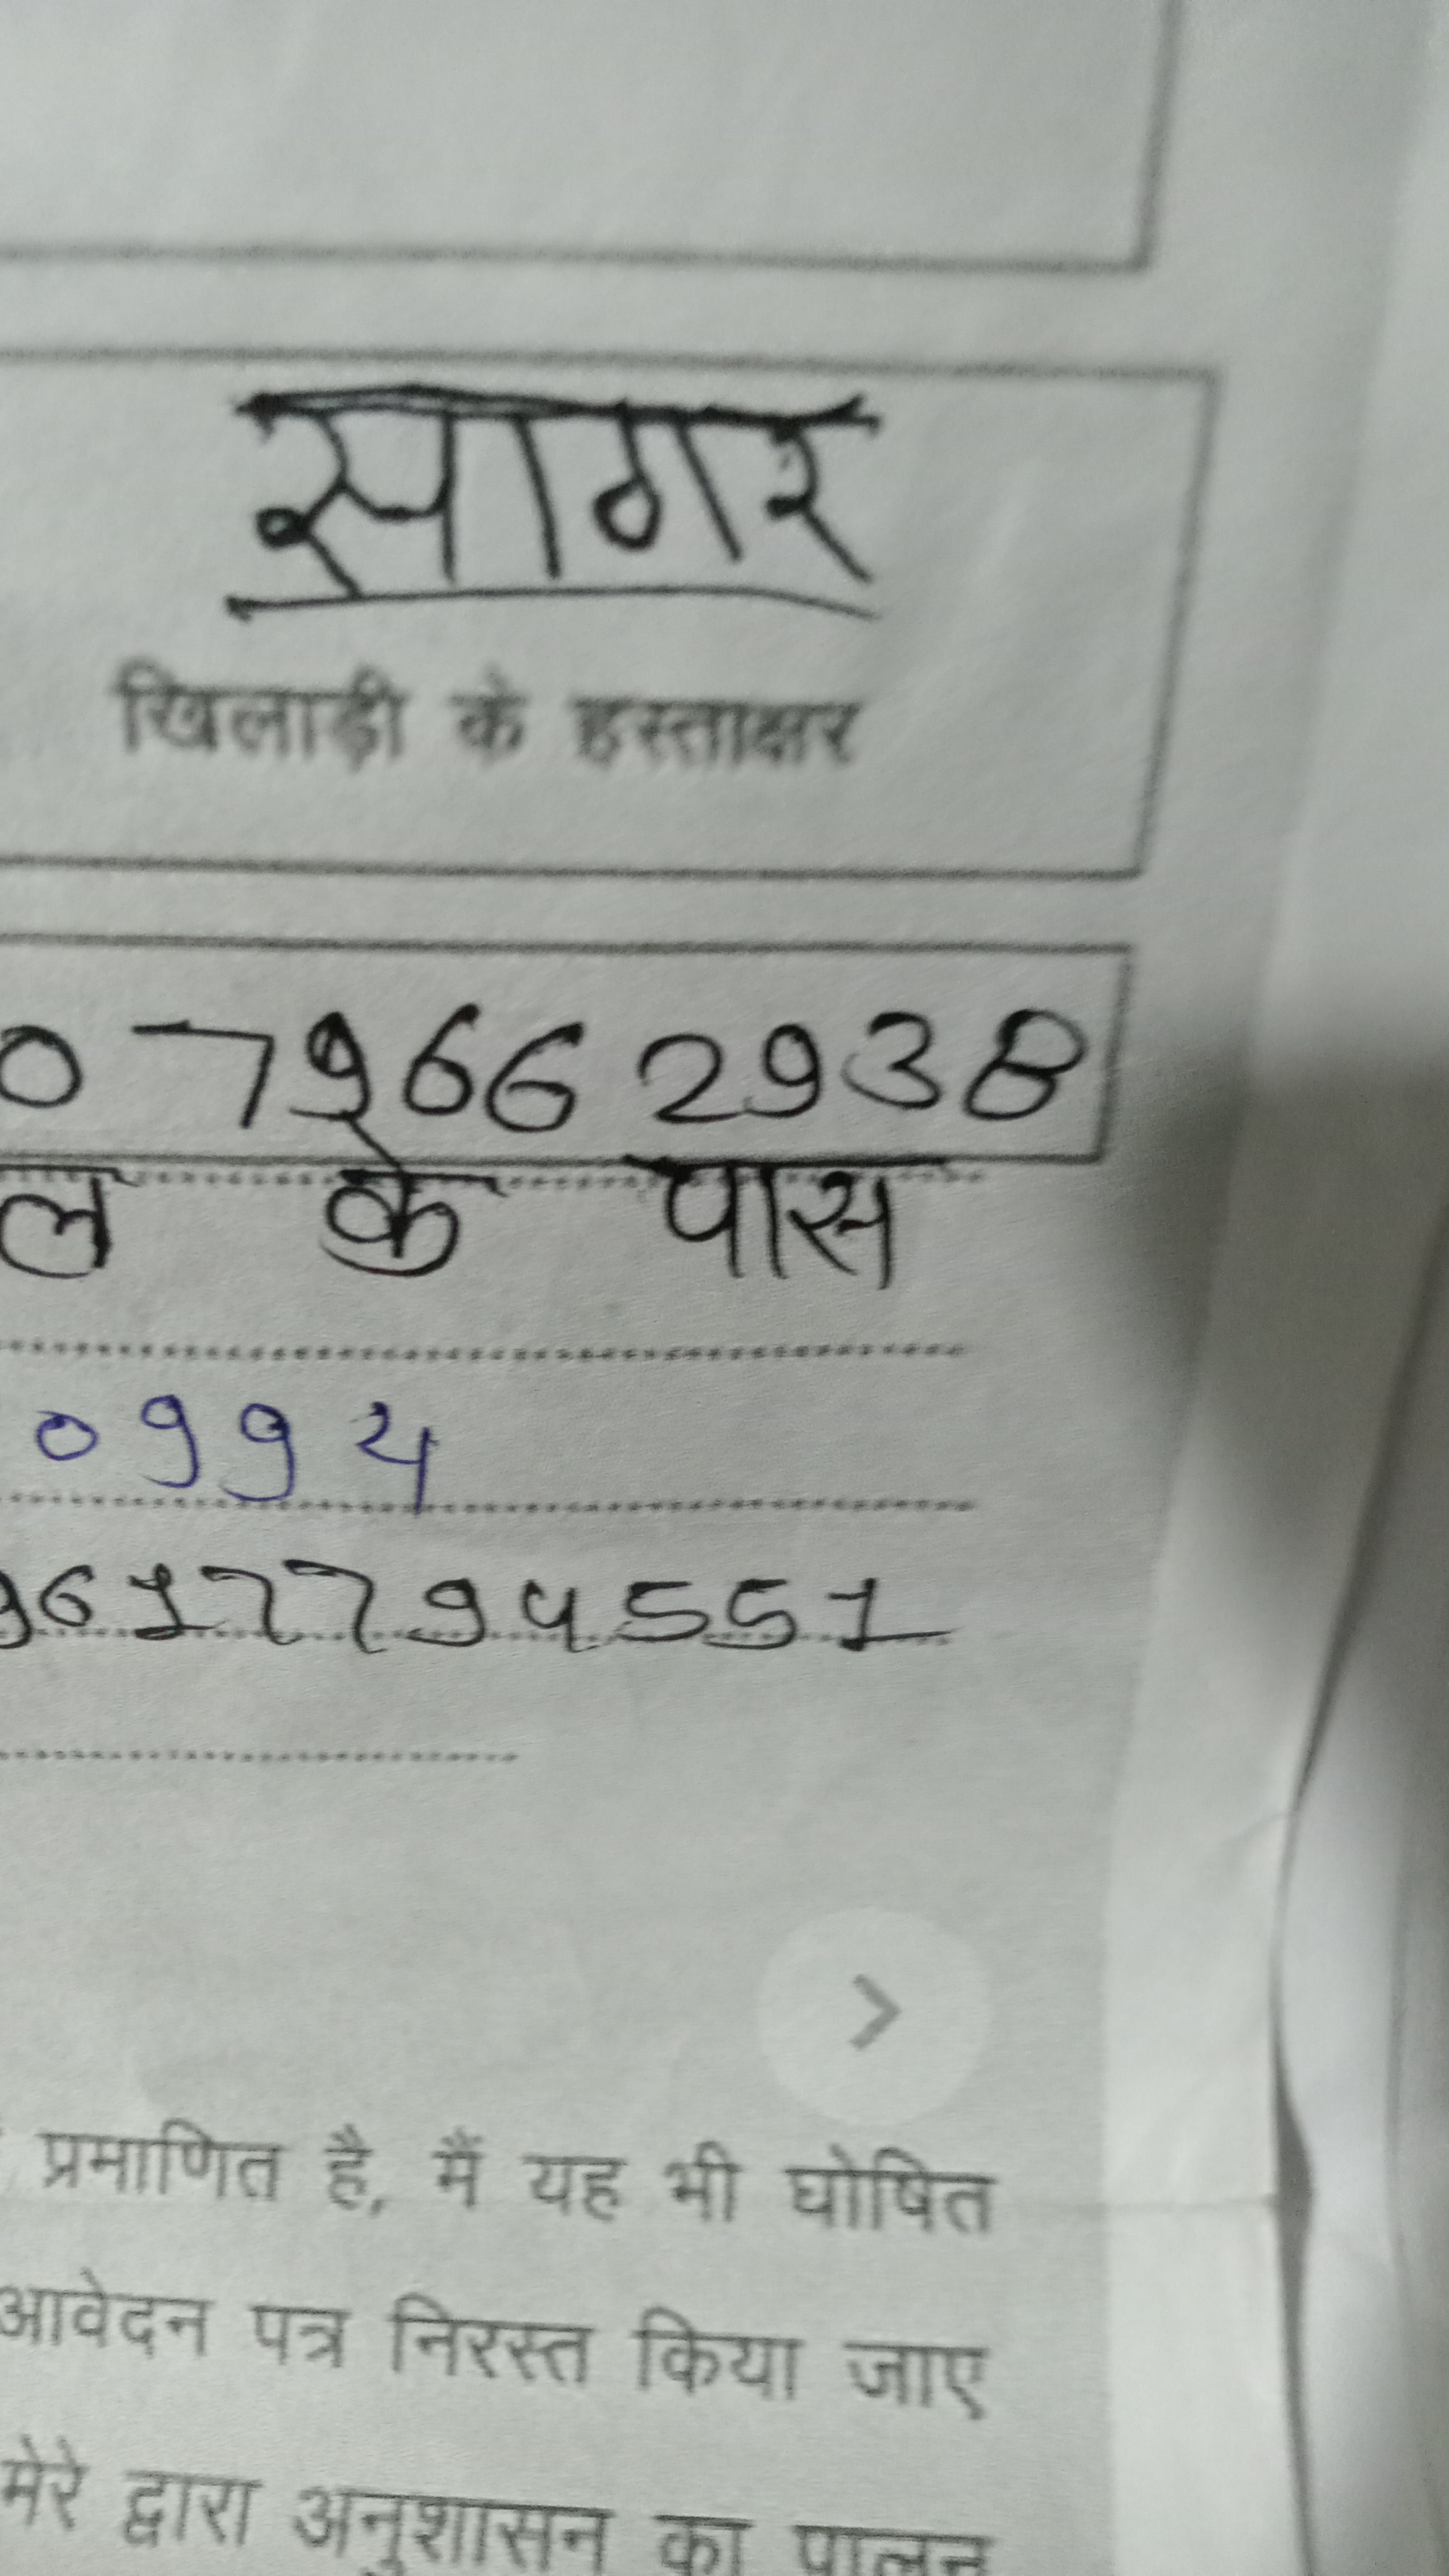 सागर
खिलाड़ी के हस्ताक्षर
079662938
ल के पास
0994
9617794551
प्रमाणित है, मैं यह भी घोषित
आवेदन पत्र निरस्त किया जाए
मेरे द्वारा अनुशासन का पालन